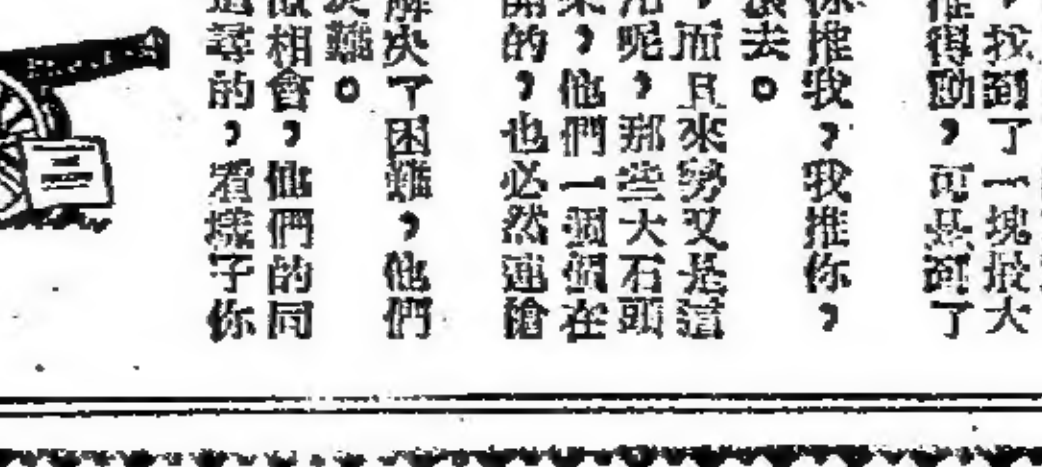 ，找到了一塊最大
推得動，可是到了
你推我，我推你，
滾去。
，而且來勢又是這
呢，那些大石頭
來，他們一個個在
開的，也必然連槍
解決了困難，他們
難。
相會，他們的同
尋的，看樣子你
三